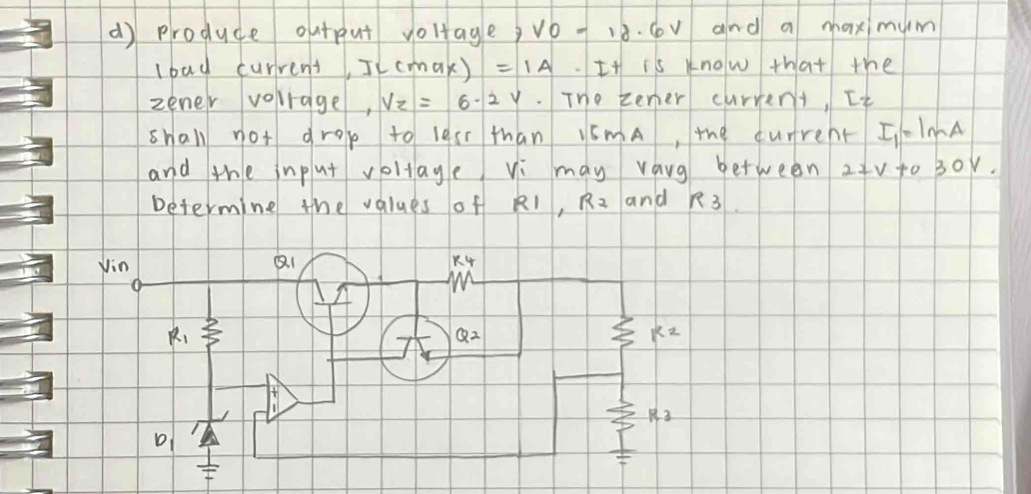 d) Produce output voltage, VO = 12.6V and a maximum
load current, IL(max) = 1A. It is know that the
zener voltage, Vz = 6.2V. The zener current, Iz
shall not drop to less than 15mA, the current I1=1mA
and the input voltage, Vi may varg between 22V to 30V.
Determine the values of R1, R2 and R3.
Vin
Q1
R4
R1
Q2
R2
+
-
R3
D1